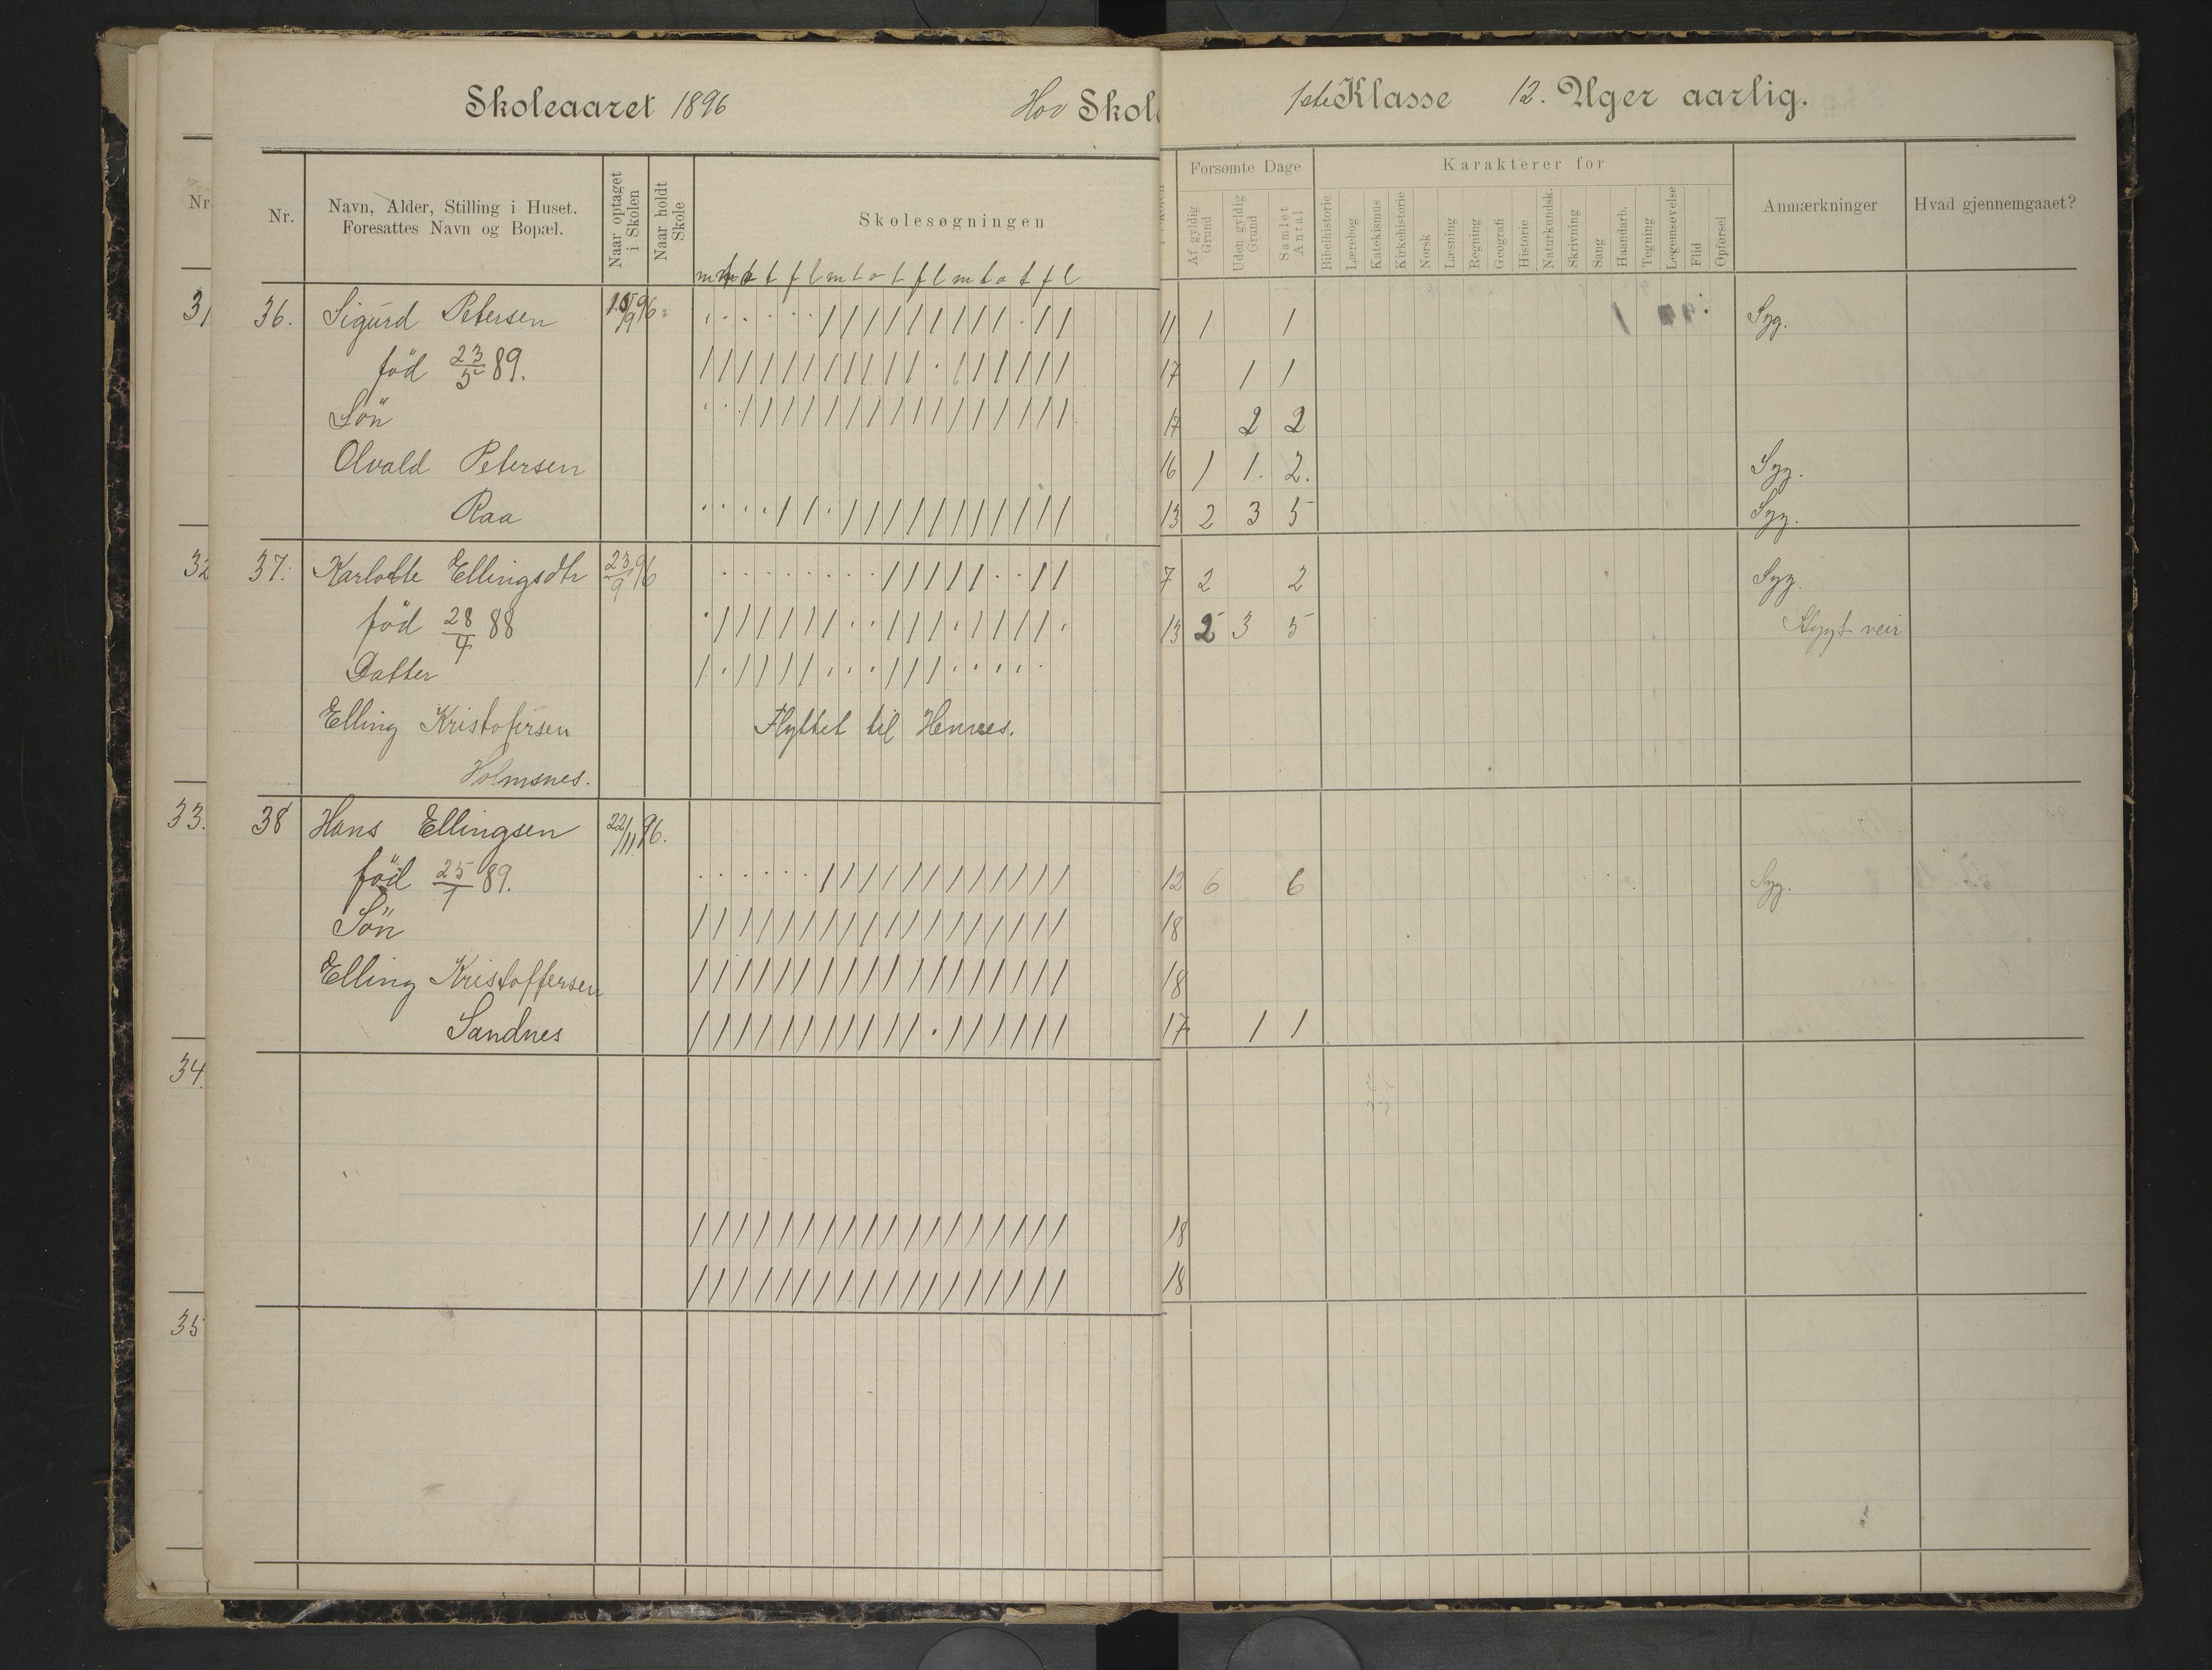 Skoleaaret 1896 Hov Skole 1ste Klasse 12. Uger aarlig.
Nr.
Nr.
Navn, Alder, Stilling i Huset.
Foresattes Navn og Bopæl.
Naar optaget
i Skolen
Naar holdt
Skole
Skolesøgningen
Forsømte Dage
Af gyldig
Grund
Uden gyldig
Grund
Samlet
Antal
Karakterer for
Bibelhistorie
Lærebog
Katekismus
Kirkehistorie
Norsk
Læsning
Regning
Geografi
Historie
Naturkundsk.
Skrivning
Sang
Haandarb.
Tegning
Legemsøvelse
Flid
Opførsel
Anmærkninger
Hvad gjennemgaaet?
t f l m t o t f l m t o t f l
31 36. Sigurd Petersen 96 11 1 1 Syg.
föd 23/5 89. 17 1 1
Sön 17 2 2
Olvald Petersen 16 1 1. 2. Syg.
Raa 13 2 3 5 Syg.
32 37. Karlotte Ellingsdtr 23/9 96 7 2 2 Syg.
föd 28/4 88 13 2 3 5 Stygt veir
Datter
Elling Kristofersen Flyttet til Hennes.
Holmsnes.
33. 38 Hans Ellingsen 22/11 96.
föd 25/1 89. 12 6 6 Syg.
Sön 18
Elling Kristoffersen 18
Sandnes 17 1 1
34.
18
18
35